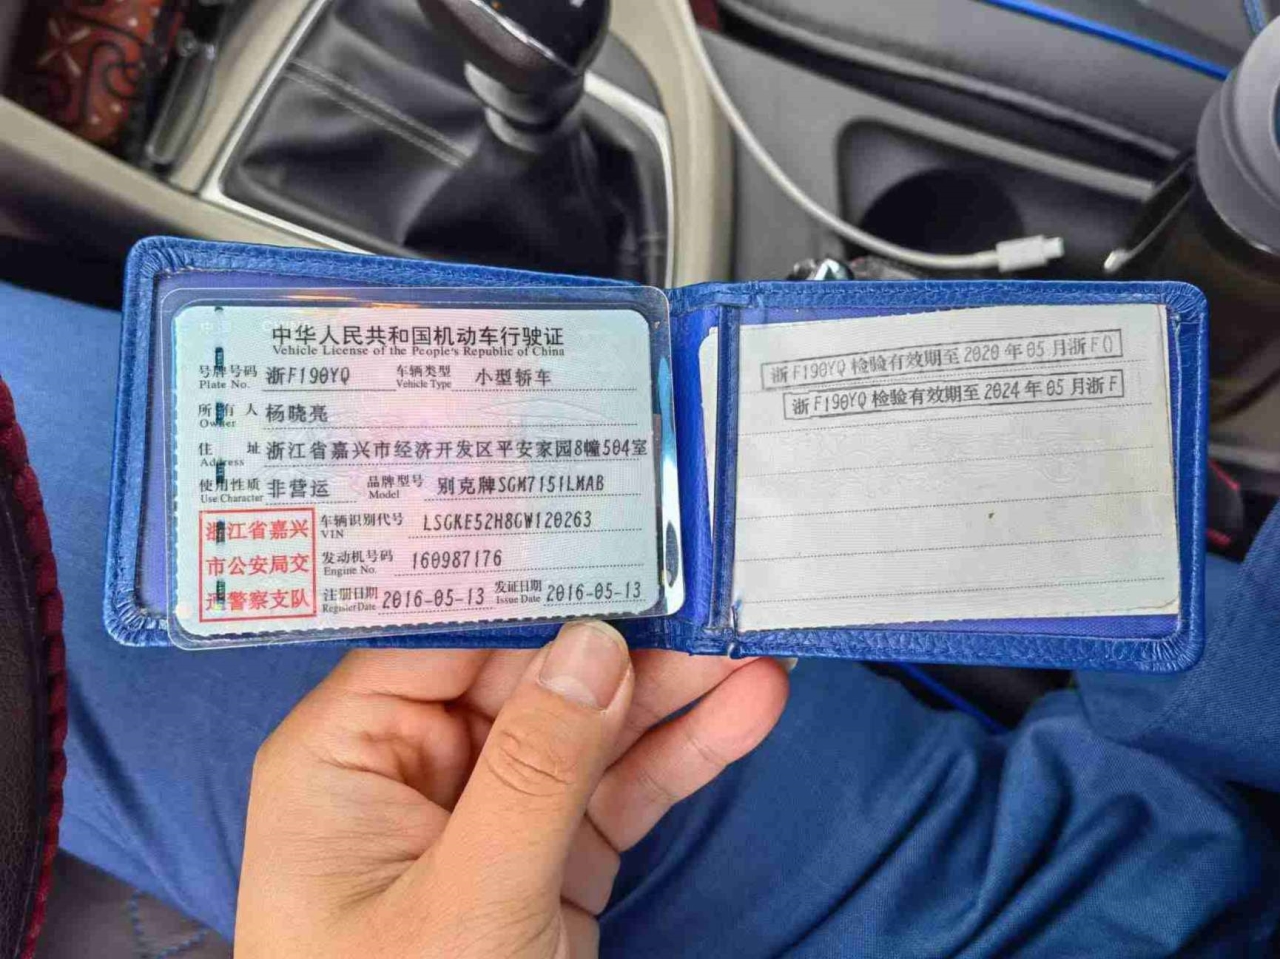 中华人民共和国机动车行驶证
Vehicle License of the People's Republic of China
号牌号码 浙F190YQ 车辆类型 小型轿车
Plate No. Vehicle Type
所有人 杨晓亮
Owner
住址 浙江省嘉兴市经济开发区平安家园8幢504室
Address
使用性质 非营运 品牌型号 别克牌SGM7151LMAB
Use Character Model
浙江省嘉兴
市公安局交
通警察支队
车辆识别代号 LSGKE52H8GW120263
VIN
发动机号码 160987176
Engine No.
注册日期 2016-05-13 发证日期 2016-05-13
Register Date Issue Date
浙F190YQ 检验有效期至 2020 年 05 月浙F()
浙F190YQ 检验有效期至 2024 年 05 月浙F